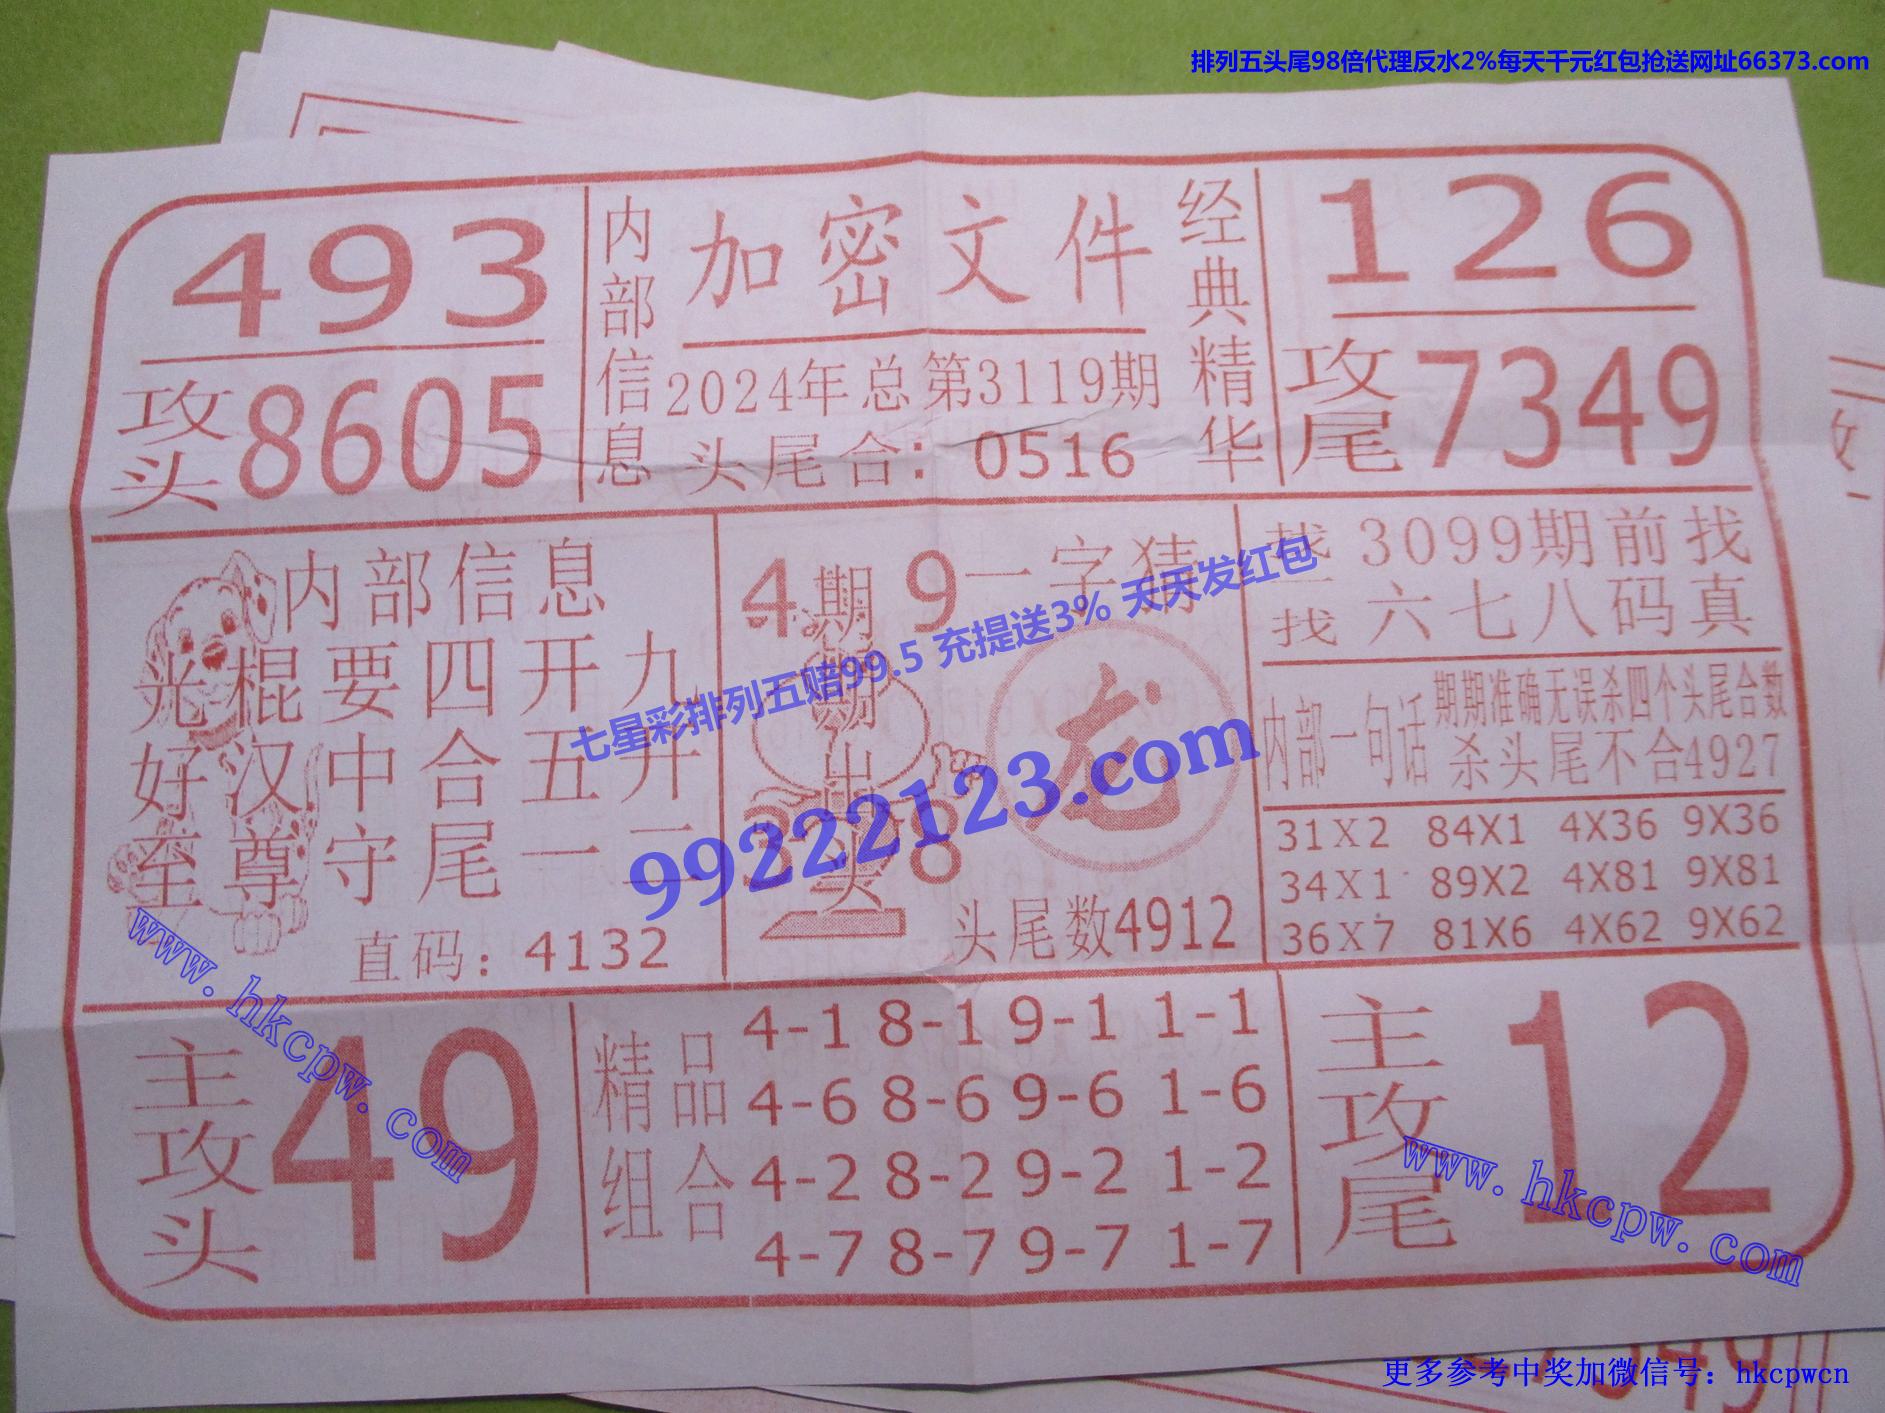 排列五头尾98倍代理反水2%每天千元红包抢送网址66373.com
493
攻头 8605
内部信息
加密文件
2024年总第3119期
头尾合：0516
经典精华
126
攻尾 7349
内部信息
光棍要四开九
好汉中合五开
至尊守尾一二
直码：4132
4 9
期期出头
3 8
一字猜
龙
头尾数4912
找一找
3099期前找
六七八码真
内部一句话
期期准确无误杀四个头尾合数
杀头尾不合4927
31X2 84X1 4X36 9X36
34X1 89X2 4X81 9X81
36X7 81X6 4X62 9X62
七星彩排列五赔99.5 充提送3% 天天发红包
99222123.com
主攻头 49
精品组合
4-1 8-1 9-1 1-1
4-6 8-6 9-6 1-6
4-2 8-2 9-2 1-2
4-7 8-7 9-7 1-7
主攻尾 12
www.hkcpw.com
www.hkcpw.com
更多参考中奖加微信号：hkcpwcn